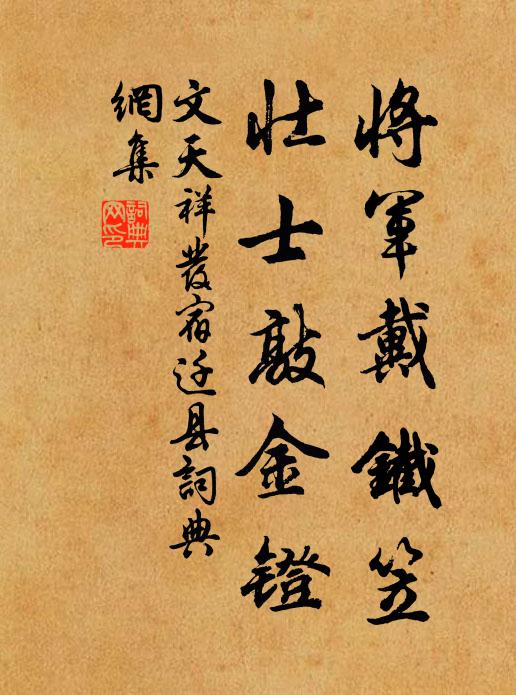 將軍戴鐵笠
壯士敲金鐙
文天祥發宿迁县詞典
網集
詞典
网印